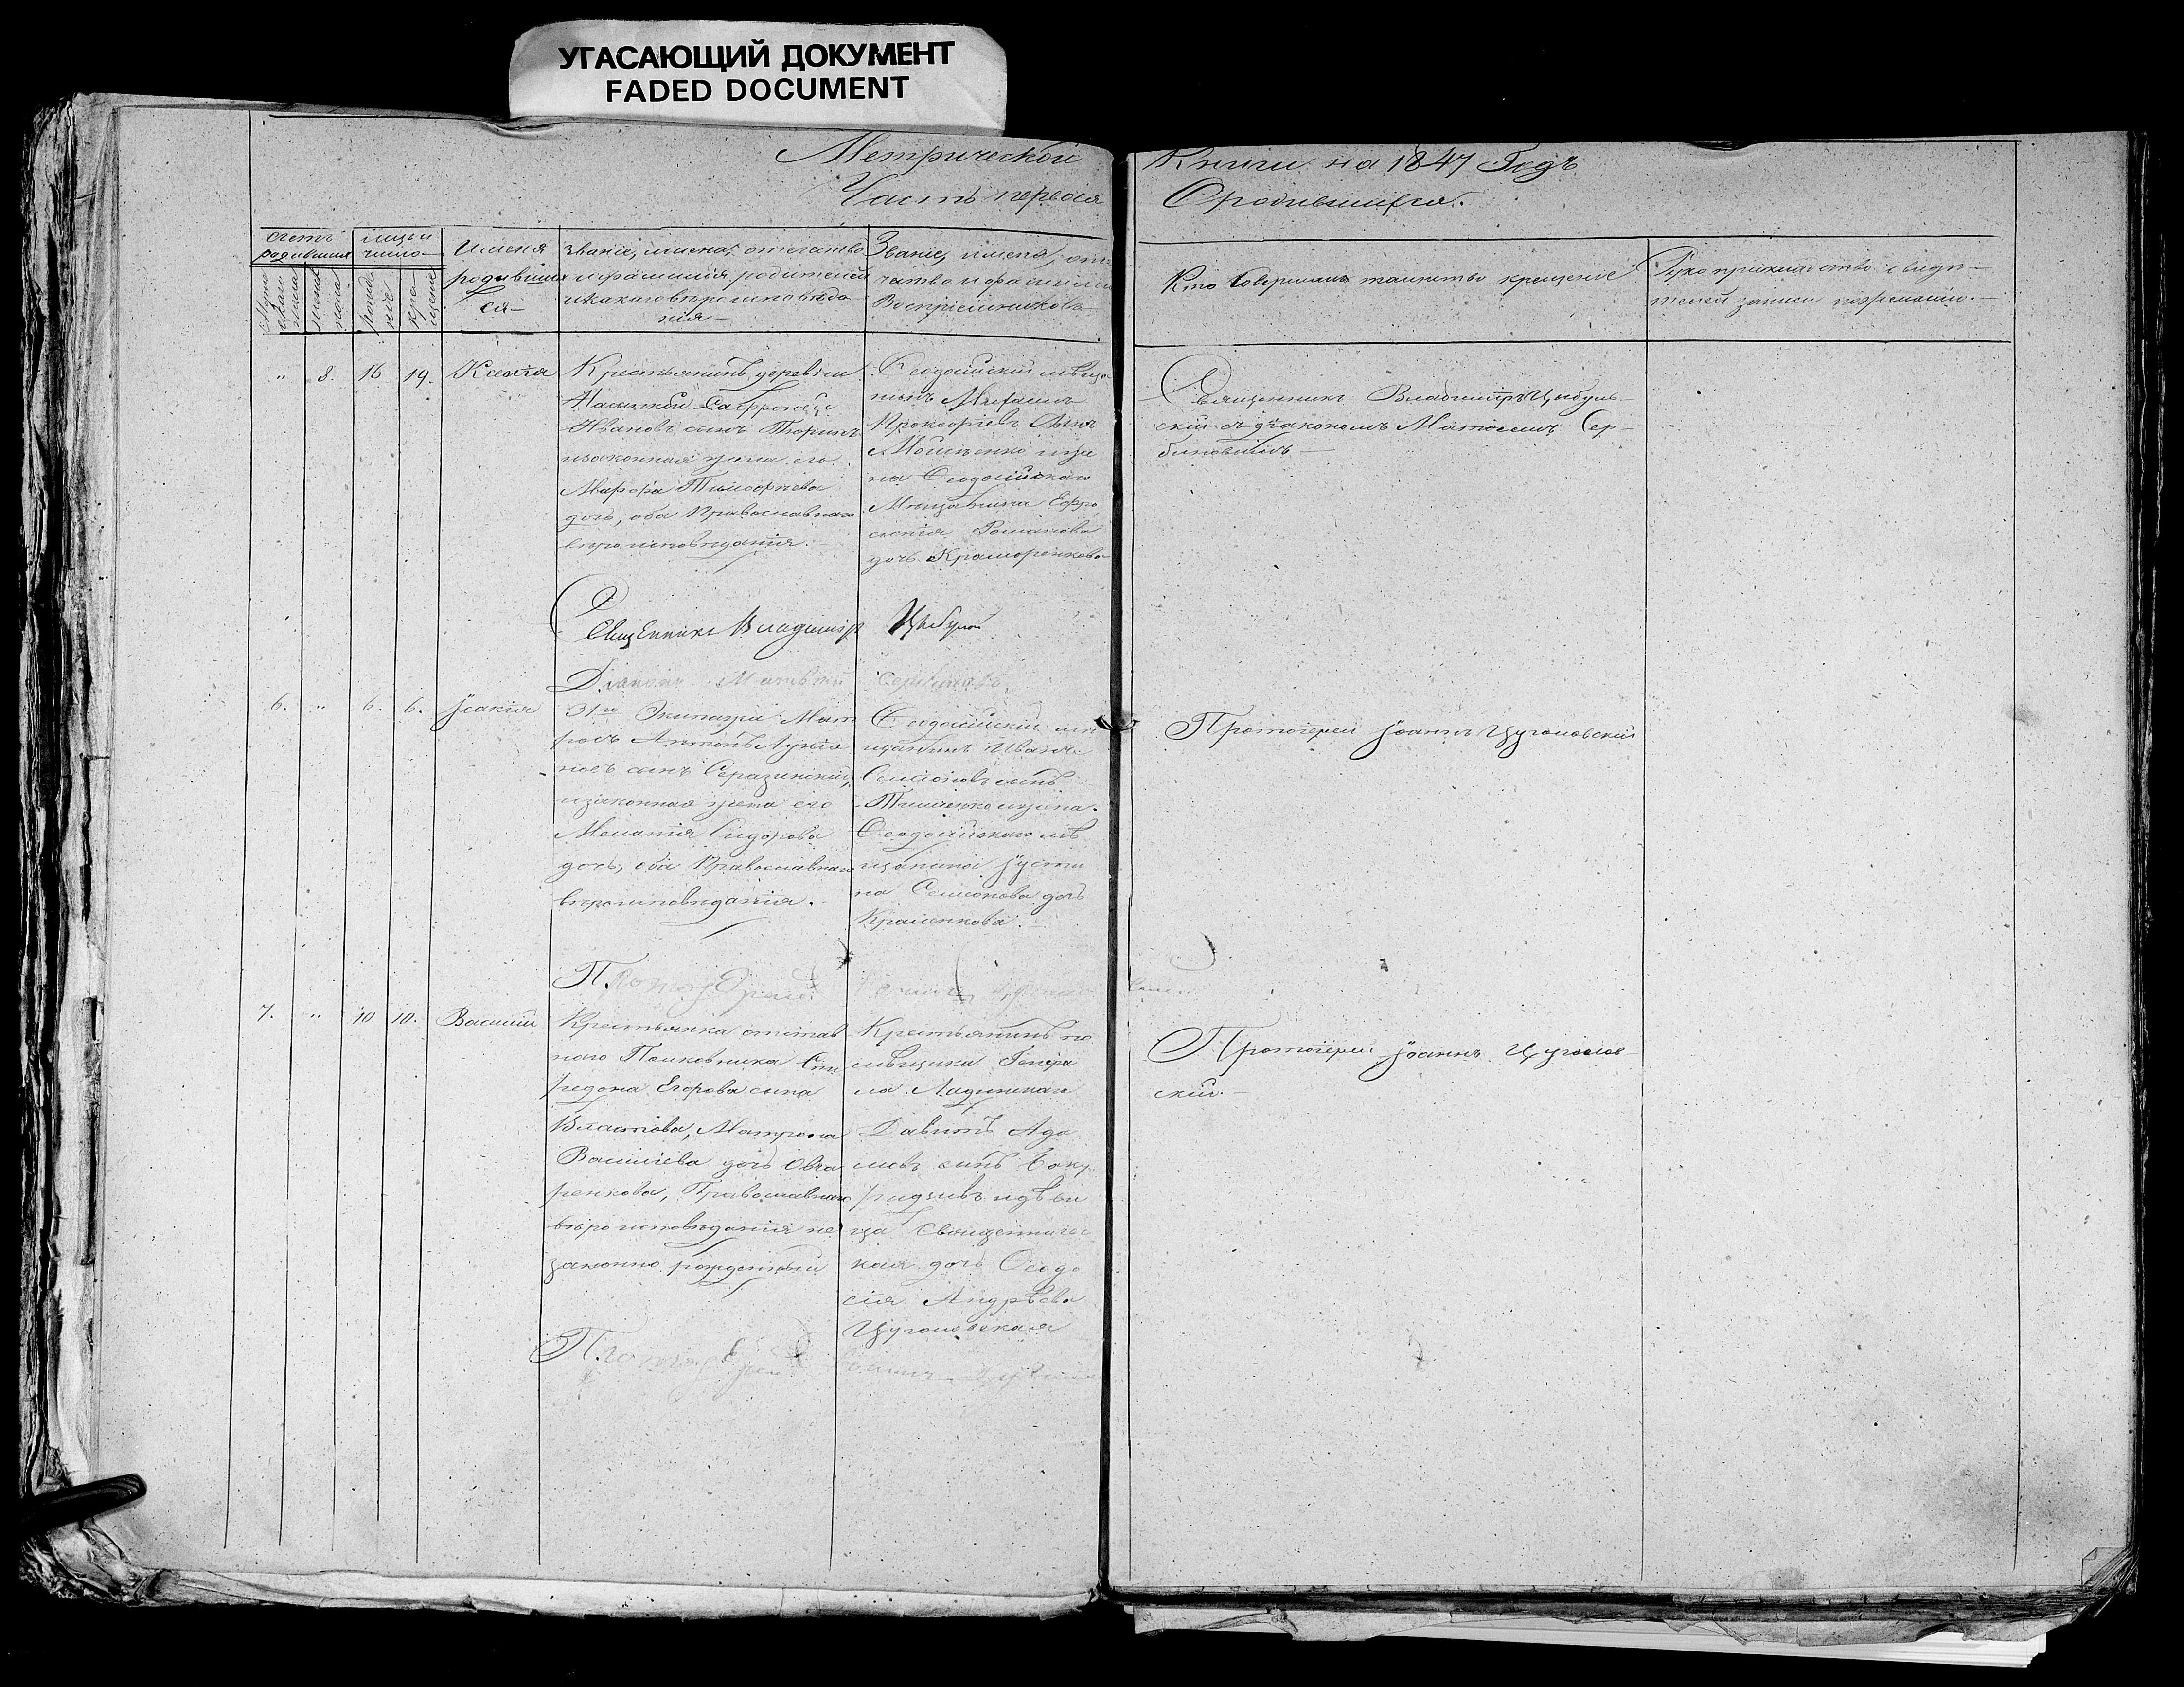 УГАСАЮЩИЙ ДОКУМЕНТ
FADED DOCUMENT
Метрической Книги на 1847 Годъ
Часть первая О родившихся.
счетъ
родивших
Муже
скаго
пола
женск
пола
число
рожде
нія
кре
щенія
Имена
родивших
ся
Званіе, имена, отечество
и фамилія родителей
и какаго вероисповѣда
нія
Званіе, имена, оте
чество и фамилія
Воспріемниковъ
Кто совершалъ таинство крещенія
Рукоприкладство свидѣ
телей записи по желанію.
" 8. 16 19. Ксенія
Крестьянинъ деревни
Ивановъ сынъ
и законная жена его
Марфа Тимофеева
дочь, оба Православнаго
вероисповѣданія.
Ѳеодосійскій мѣща
нинъ
Прокофіевъ сынъ
и же
на Ѳеодосійскаго
Мѣщанина Ефро
синія Романова
дочь Краморенкова
Священникъ Владиміръ Цыбуль
скій съ діакономъ Матвеемъ Сер
биновымъ
Священникъ Владиміръ
Діаконъ Матвѣй Сербиновъ
6. " 6. 6. Іоакія
31го Экипажа Мат
росъ Антонъ Лукіа
новъ сынъ
и законная жена его
Меланія Сидорова
дочь, оба Православнаго
вероисповѣданія.
Ѳеодосійскій мѣ
щанинъ Иванъ
Семіоновъ сынъ
Тимченко и жена
Ѳеодосійскаго мѣ
щанина Іусти
на Семіонова дочь
Протоіерей Іоаннъ Цугоновскій
7. " 10 10. Василій
Крестьянка отстав
наго Полковника Спи
ридона Егорова сына
Властова, Матрона
Васильева дочь Овча
ренкова, Православнаго
вероисповѣданія не
законно рожденный
Крестьянинъ по
мѣщика Генера
ла Ладинскаго
Давитъ Ада
мовъ сынъ
и дѣви
ца Священничес
кая дочь Ѳеодо
сія Андрѣева
Цугоновская
Протоіерей Іоаннъ Цугонов
скій.